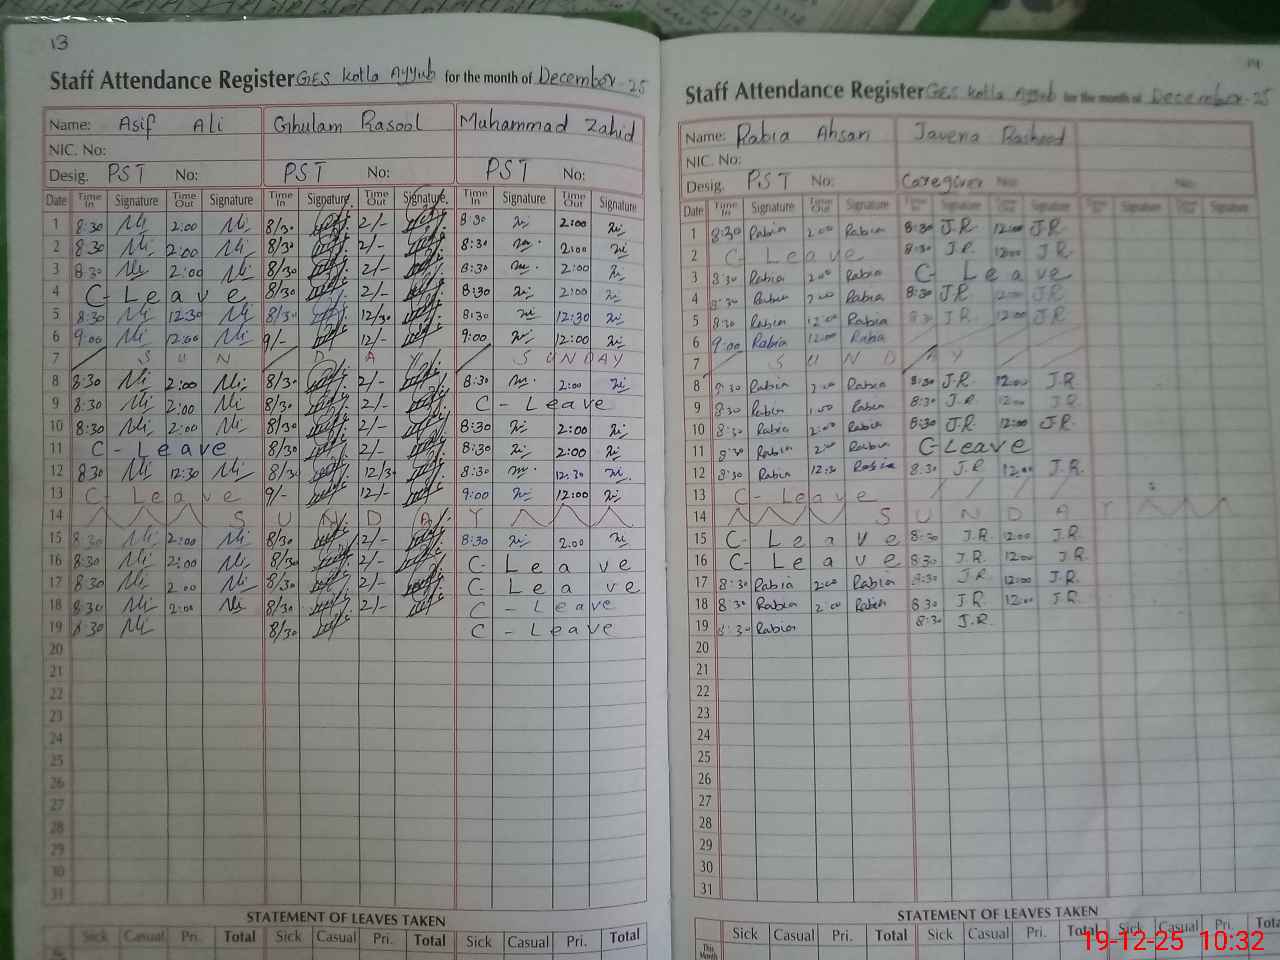 13
Staff Attendance Register GES Kotla Ayyub for the month of December-25
Name: Asif Ali Ghulam Rasool Muhammad Zahid
NIC. No:
Desig. PST No: PST No: PST No:
Date Time In Signature Time Out Signature Time In Signature Time Out Signature Time In Signature Time Out Signature
1 8:30 2:00 8/30 2/- 8:30 2:00
2 8:30 2:00 8/30 2/- 8:30 2:00
3 8:30 2:00 8/30 2/- 8:30 2:00
4 C-Leave 8/30 2/- 8:30 2:00
5 8:30 12:30 8/30 12/30 8:30 12:30
6 9:00 12:00 9/- 12/- 9:00 12:00
7 SUNDAY SUNDAY
8 8:30 2:00 8/30 2/- 8:30 2:00
9 8:30 2:00 8/30 2/- C-Leave
10 8:30 2:00 8/30 2/- 8:30 2:00
11 C-Leave 8/30 2/- 8:30 2:00
12 8:30 12:30 8/30 12/30 8:30 12:30
13 C-Leave 9/- 12/- 9:00 12:00
14 SUNDAY
15 8:30 2:00 8/30 2/- 8:30 2:00
16 8:30 2:00 8/30 2/- C-Leave
17 8:30 2:00 8/30 2/- C-Leave
18 8:30 2:00 8/30 2/- C-Leave
19 8:30 8/30 C-Leave
20
21
22
23
24
25
26
27
28
29
30
31
STATEMENT OF LEAVES TAKEN
Sick Casual Pri. Total Sick Casual Pri. Total Sick Casual Pri. Total
Staff Attendance Register GES Kotla Ayyub for the month of December-25
Name: Rabia Ahsan Javeria Rasheed
NIC. No:
Desig. PST No: Caregiver No: No:
Date Time In Signature Time Out Signature Time In Signature Time Out Signature Time In Signature Time Out Signature
1 8:30 Rabia 2:00 Rabia 8:30 J.R 12:00 J.R
2 C-Leave 8:30 J.R 12:00 J.R
3 8:30 Rabia 2:00 Rabia C-Leave
4 8:30 Rabia 2:00 Rabia 8:30 J.R J.R
5 8:30 Rabia 12:00 Rabia 8:30 J.R 12:00 J.R
6 9:00 Rabia 12:00 Rabia
7 SUNDAY
8 8:30 Rabia 2:00 Rabia 8:30 J.R 12:00 J.R
9 8:30 Rabia 1:00 Rabia 8:30 J.R 12:00 J.R
10 8:30 Rabia 2:00 Rabia 8:30 J.R 12:00 J.R
11 8:30 Rabia 2:00 Rabia C-Leave
12 8:30 Rabia 12:30 Rabia 8:30 J.R 12:00 J.R.
13 C-Leave
14 SUNDAY
15 C-Leave 8:30 J.R. 12:00 J.R.
16 C-Leave 8:30 J.R. 12:00 J.R.
17 8:30 Rabia 2:00 Rabia 8:30 J.R 12:00 J.R.
18 8:30 Rabia 2:00 Rabia 8:30 J.R. 12:00 J.R.
19 8:30 Rabia 8:30 J.R.
20
21
22
23
24
25
26
27
28
29
30
31
STATEMENT OF LEAVES TAKEN
Sick Casual Pri. Total Sick Casual Pri. Total Sick Casual Pri. Total
This Month
19-12-25 10:32